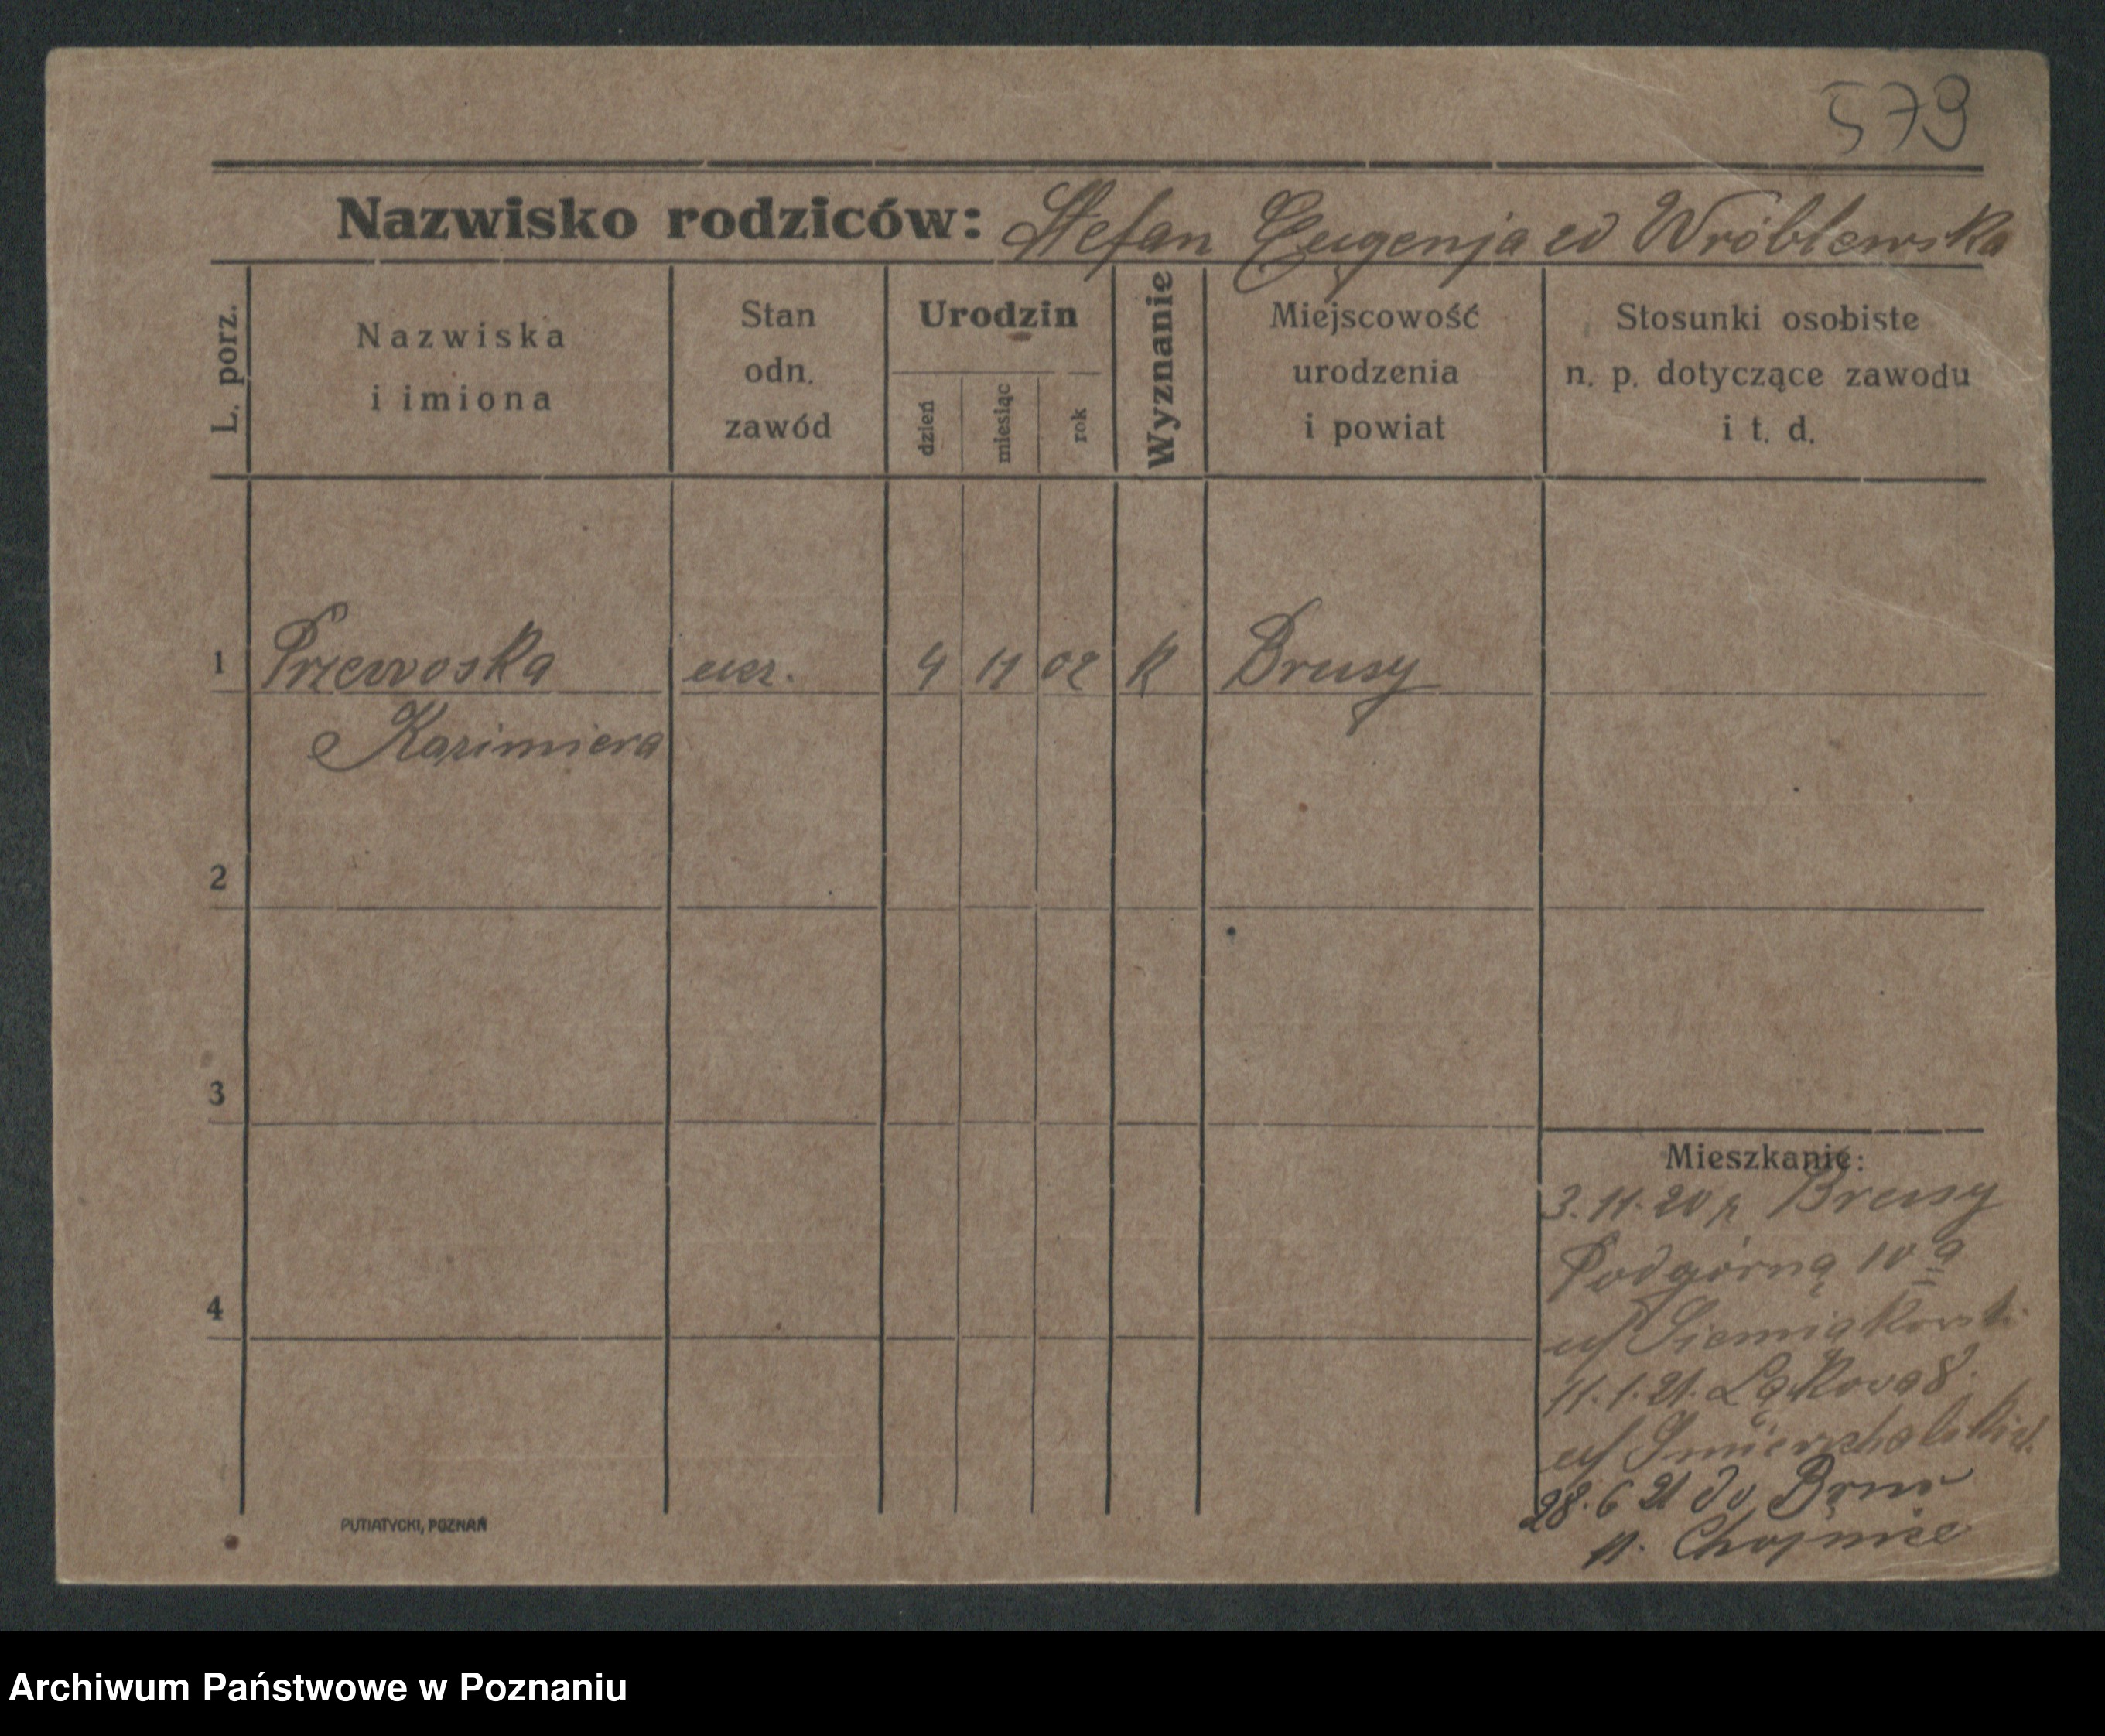 579
Nazwisko rodziców: Stefan Eugenja w Wróblewska
L. porz.
Nazwiska i imiona
Stan odn. zawód
Urodzin
dzień miesiąc rok
Wyznanie
Miejscowość urodzenia i powiat
Stosunki osobiste n. p. dotyczące zawodu i t. d.
1 Przewoska ucz. 4 11 02 K Brusy
Kazimiera
2
3
4
Mieszkanie:
3.11.20 z Brusy
Podgórna 10a
Siemiątkowski
11.1.21. Łąkowa 8.
28.6 21 do
p. Chojnice
PUTIATYCKI, POZNAŃ
Archiwum Państwowe w Poznaniu